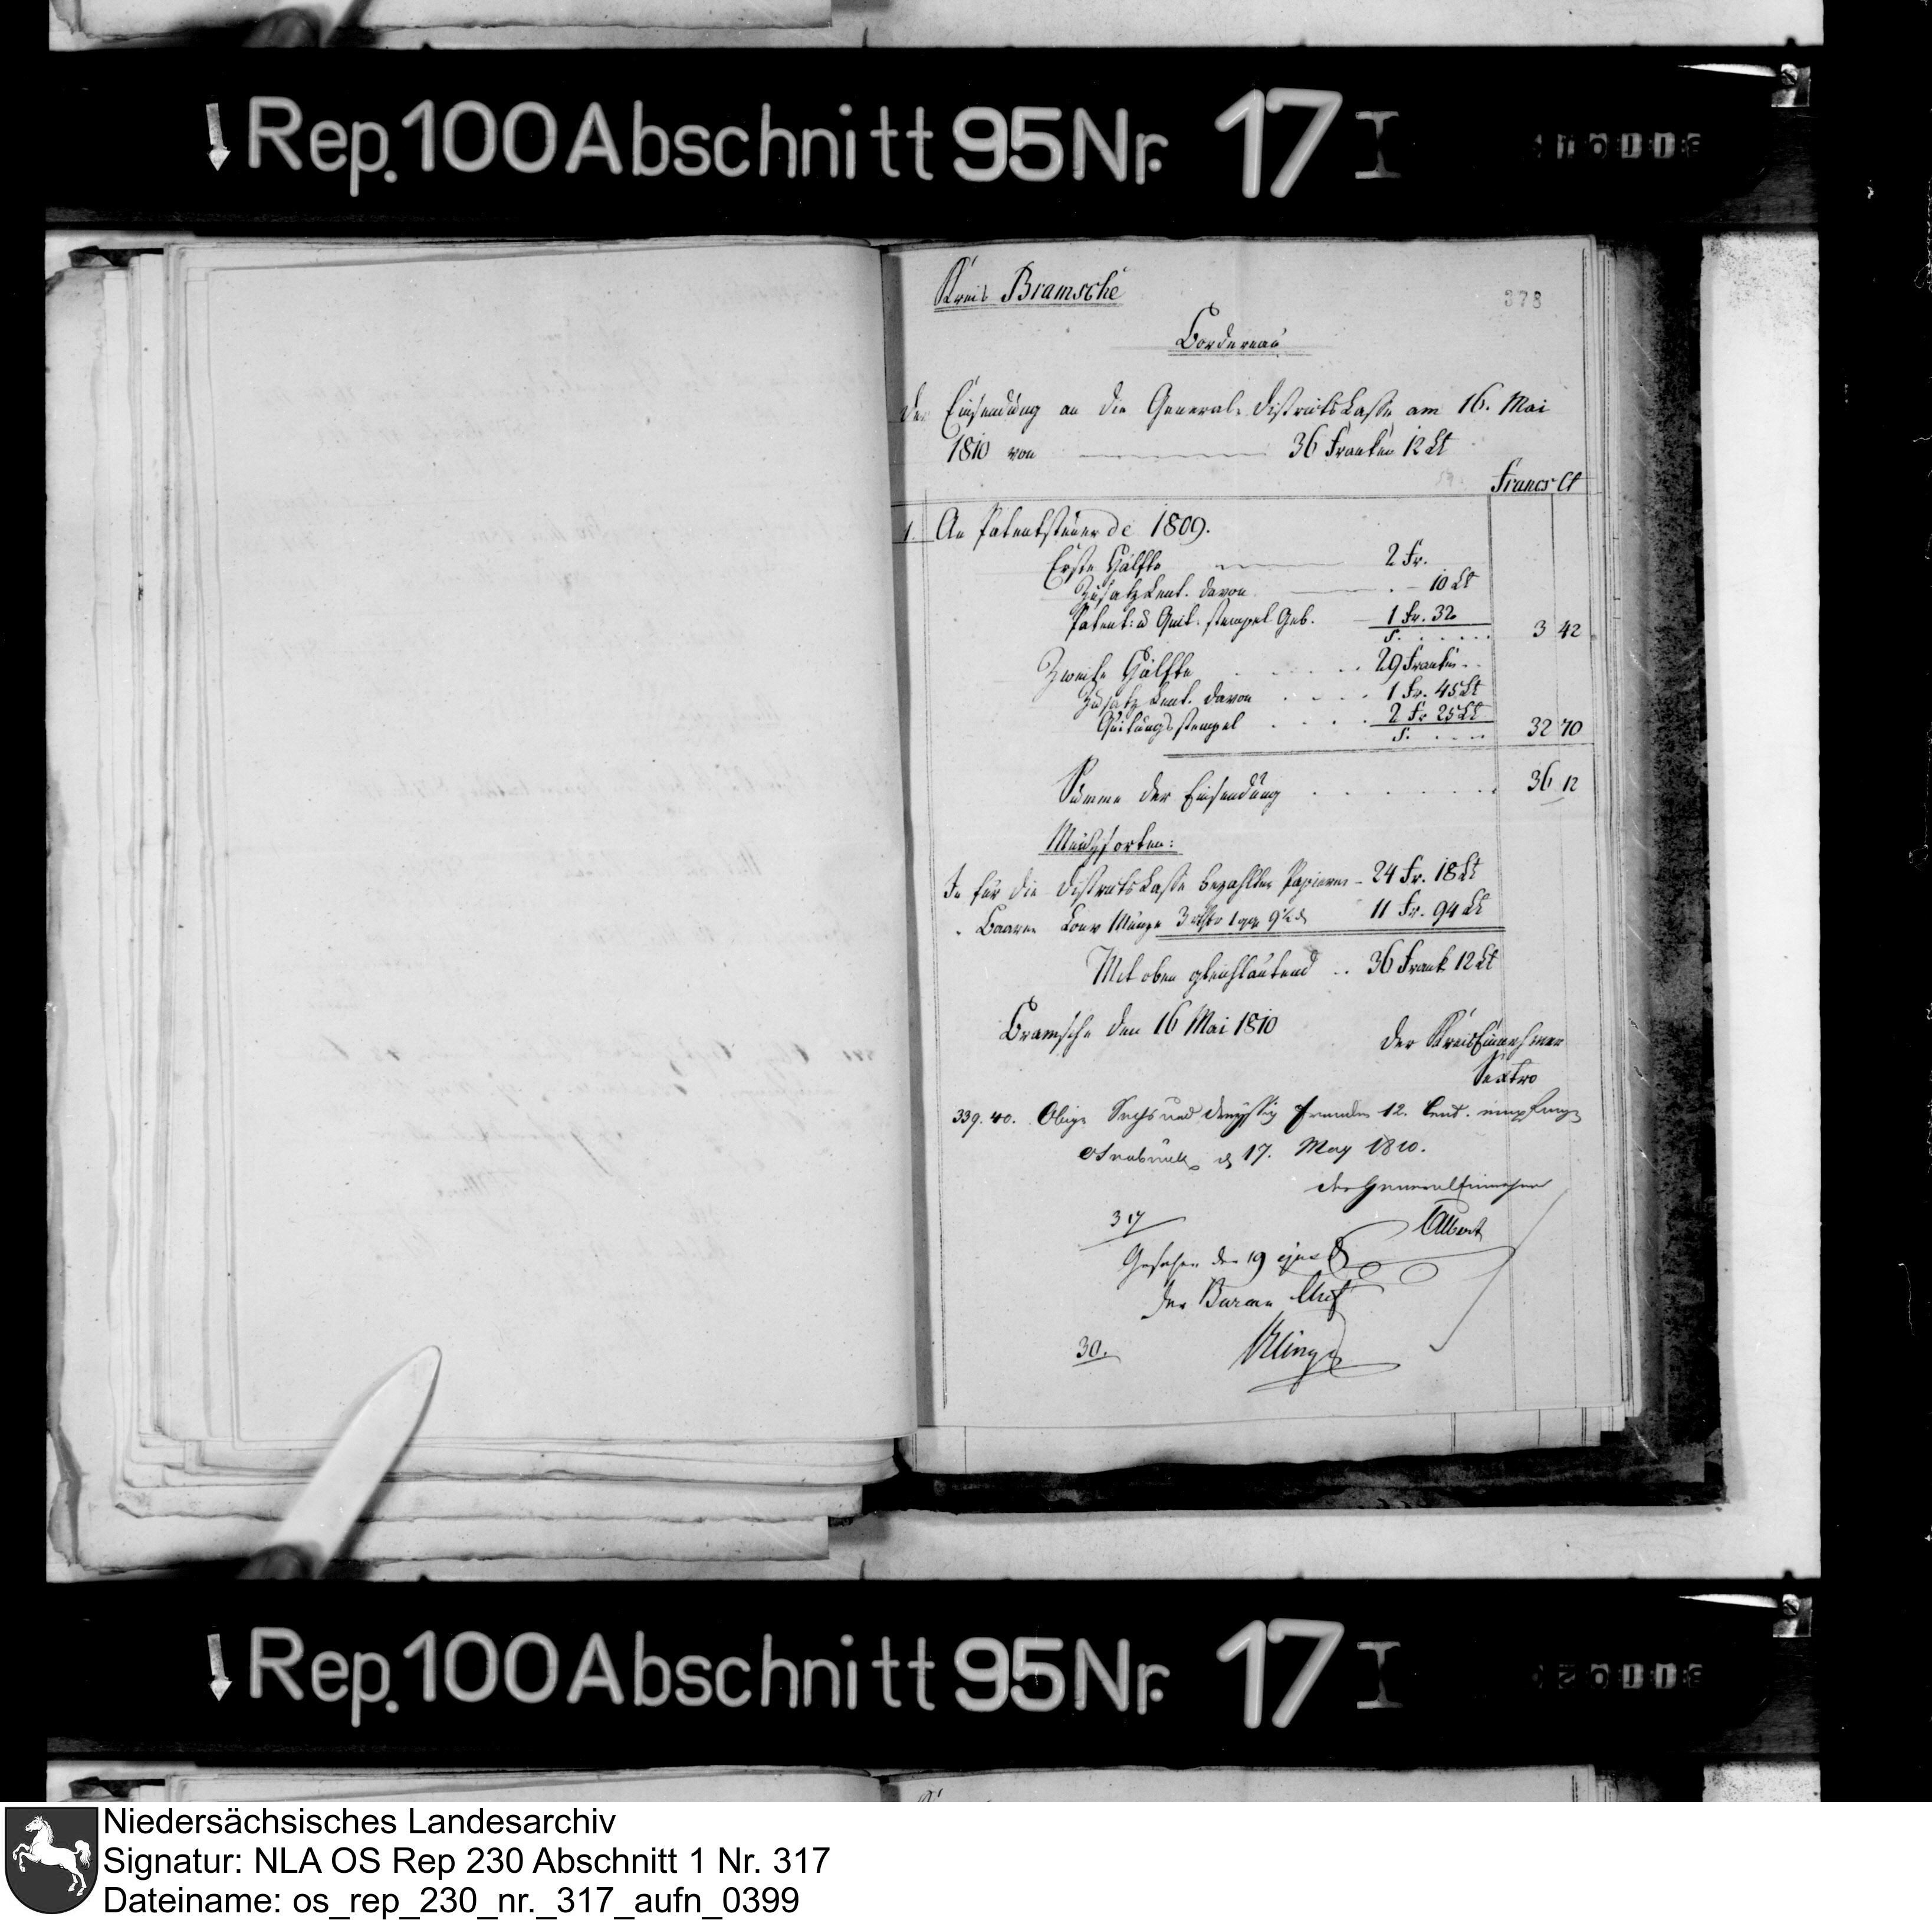 Rep. 100 Abschnitt 95 Nr. 17 I
Kreis Bramsche
378
Bordereau
Der Einsendung an die General-Districtskasse am 16. Mai
1810 von 36 Franken 12 Ct
Francs Ct
1. An Patentsteuer de 1809.
Erste Hälfte 2 Fr.
Zusatz Cent. davon - 10 Ct
Patent: u Quit: stempel Geb. 1 Fr. 32
S. 3 42
Zweite Hälfte 29 Franken
Zusatz Cent. davon 1 Fr. 45 Ct
Quitungsstempel 2 Fr 25 Ct
S. 32 70
Summe der Einsendung 36 12
Münzsorten:
In für die Districtskasse bezahlten Papieren - 24 Fr. 18 Ct
Baaren Conv Münze 3 1 9 11 Fr. 94 Ct
Mit oben gleichlautend .. 36 Frank 12 Ct
Bramsche den 16 Mai 1810
Der Kreiseinnehmer
Sextro
339. 40. Obige Sechs und dreyssig Franken 12. Cent. empfangen
Osnabrück d 17. May 1810.
der General Einnehmer
Albert
317
Gesehen den 19 ejusd
Der Bureau Chef
30. Klinge
Rep. 100 Abschnitt 95 Nr. 17 I
Niedersächsisches Landesarchiv
Signatur: NLA OS Rep 230 Abschnitt 1 Nr. 317
Dateiname: os_rep_230_nr._317_aufn_0399